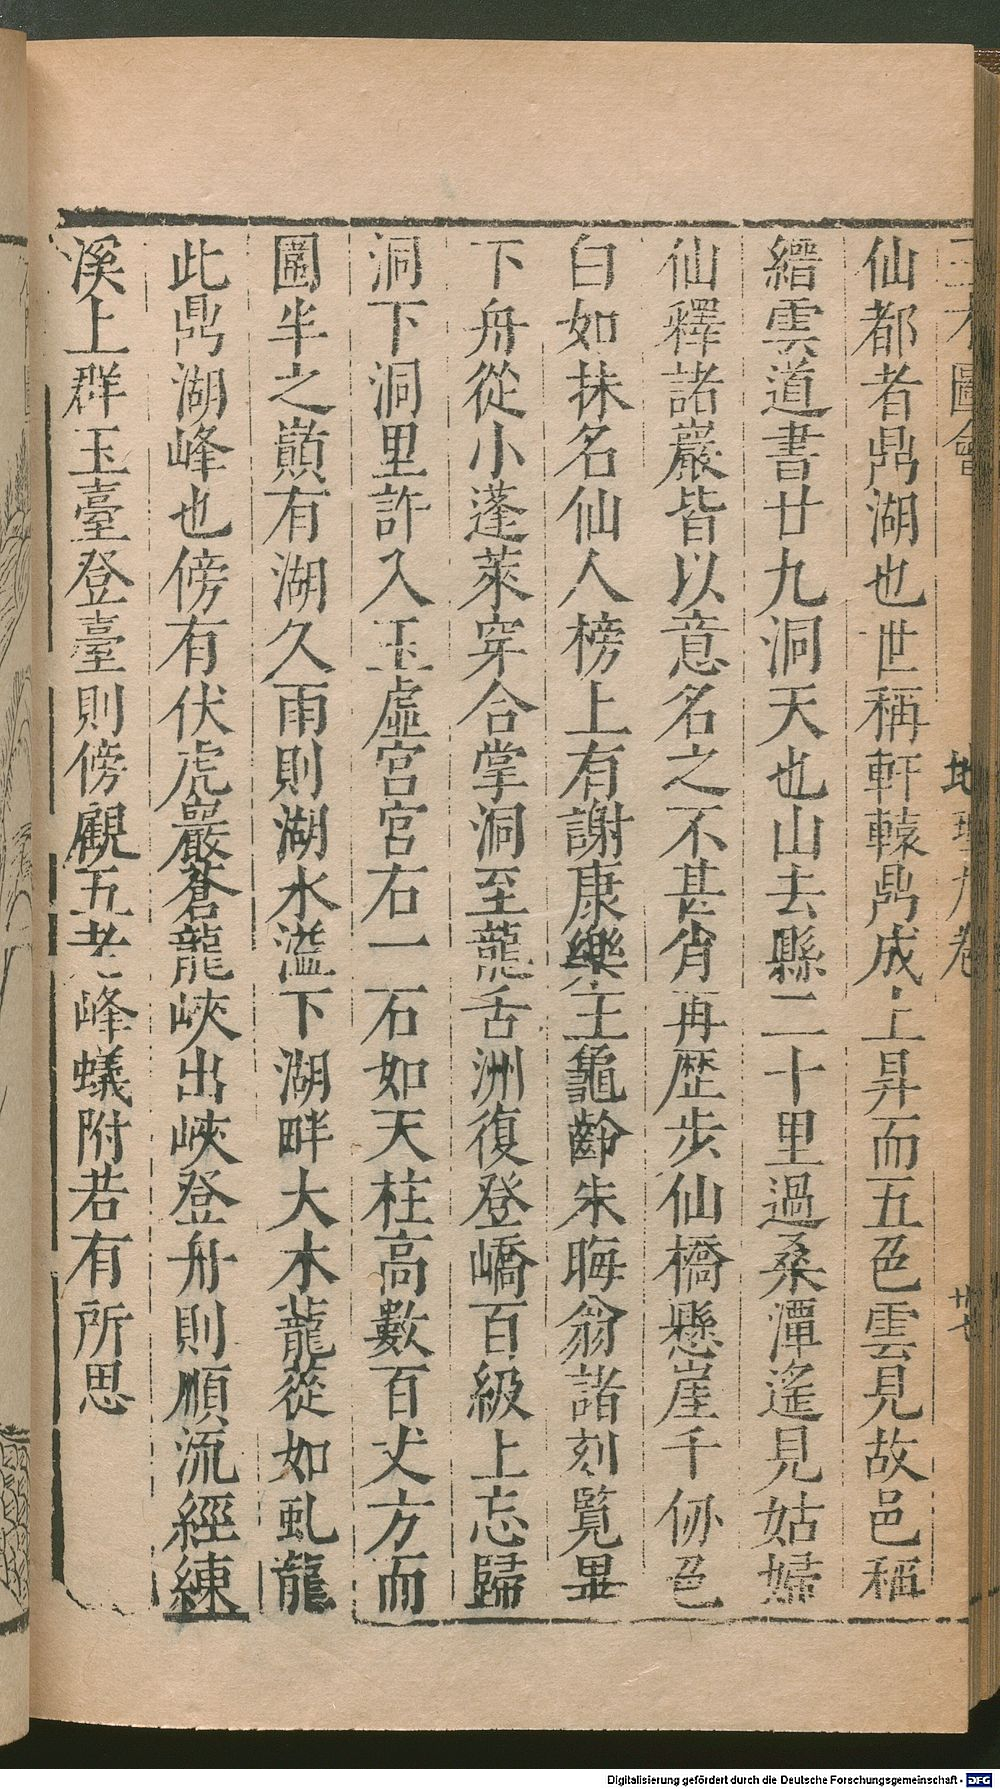 三才圖會 地理九卷 廿七
仙都者鼎湖也世稱軒轅鼎成上昇而五色雲見故邑稱
縉雲道書廿九洞天也山去縣二十里過桑潭遙見姑婦
仙釋諸巖皆以意名之不甚肖再歷步仙橋懸崖千仞色
白如抹名仙人榜上有謝康樂王龜齡朱晦翁諸刻覽畢
下舟從小蓬萊穿合掌洞至龍舌洲復登嶠百級上忘歸
洞下洞里許入玉虛宮宮右一石如天柱高數百丈方而
圓半之巔有湖久雨則湖水溢下湖畔大木龍從如虬龍
此鼎湖峰也傍有伏虎巖蒼龍峽出峽登舟則順流經練
溪上群玉臺登臺則傍觀五老峰蟻附若有所思
Digitalisierung gefördert durch die Deutsche Forschungsgemeinschaft - DFG